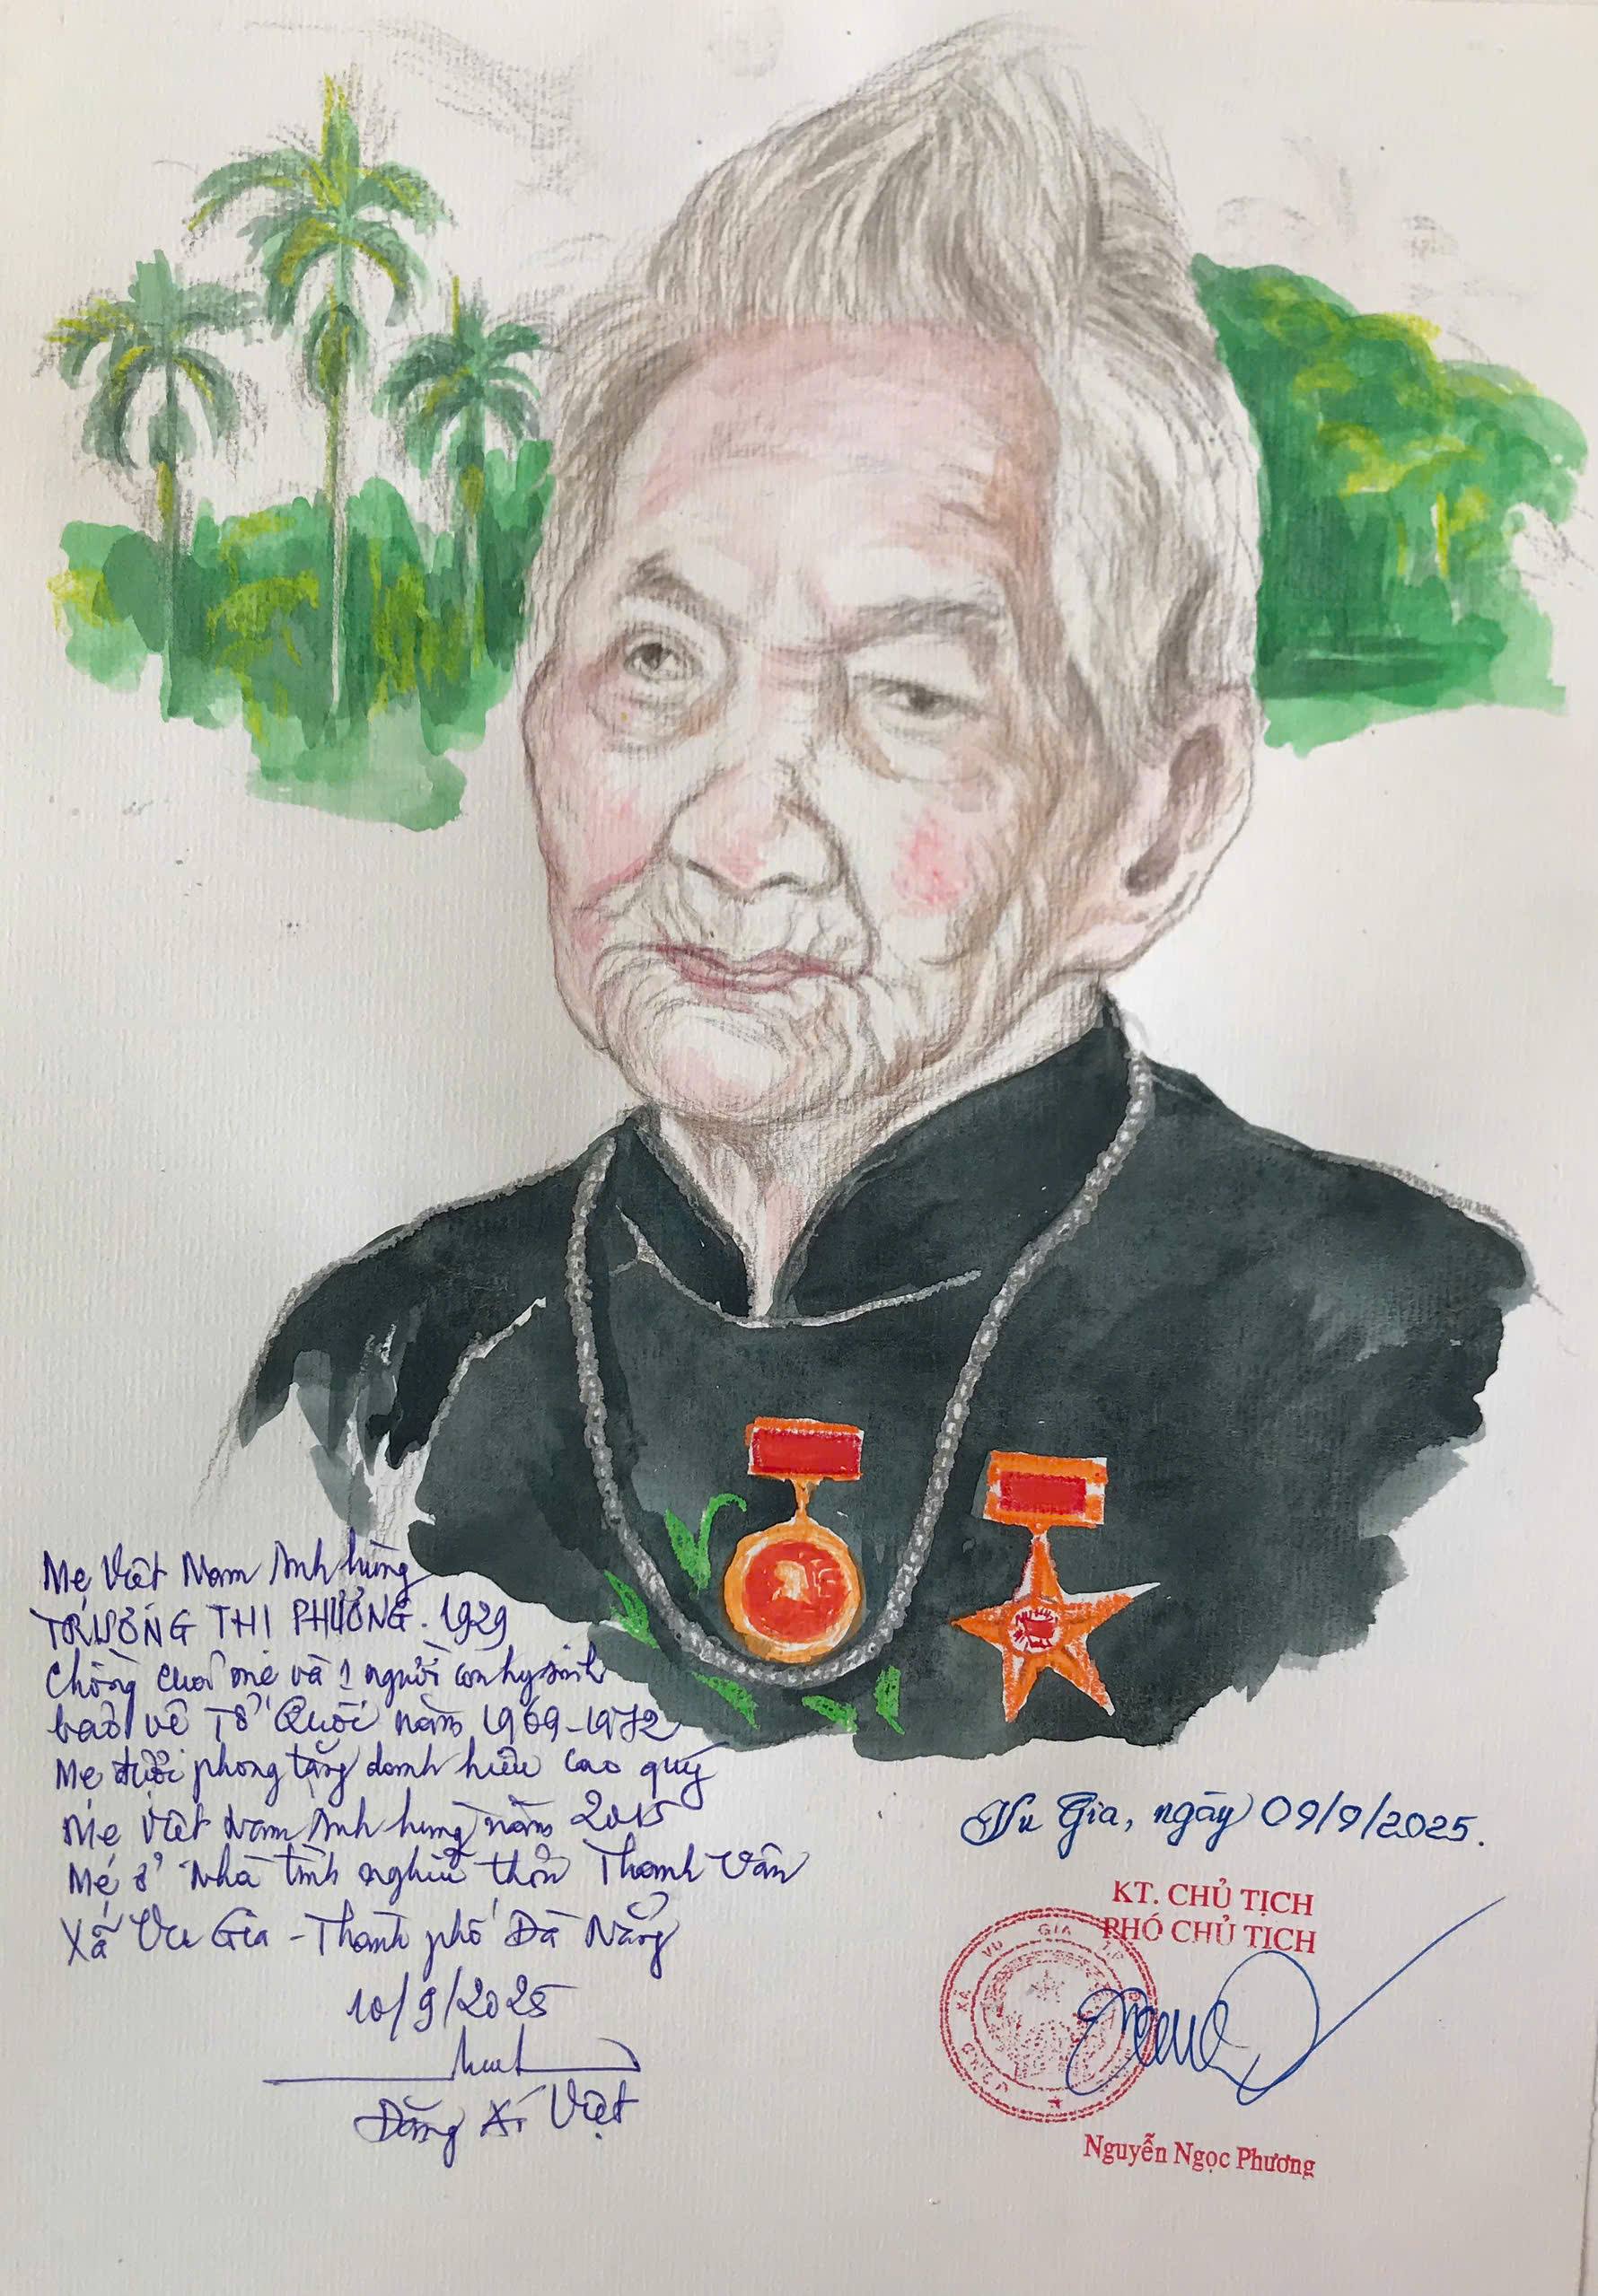 Mẹ Việt Nam Anh hùng
TRƯƠNG THỊ PHƯƠNG. 1929
Chồng của mẹ và 1 người con hy sinh
bảo vệ Tổ Quốc năm 1969-1972
Mẹ được phong tặng danh hiệu cao quý
Mẹ Việt Nam Anh hùng năm 2015
Mẹ ở Nhà tình nghĩa thôn Thanh Vân
Xã Vu Gia - Thành phố Đà Nẵng
10/9/2025
Đặng Ái Việt
Vu Gia, ngày 09/9/2025.
KT. CHỦ TỊCH
PHÓ CHỦ TỊCH
VU GIA TP
Nguyễn Ngọc Phương